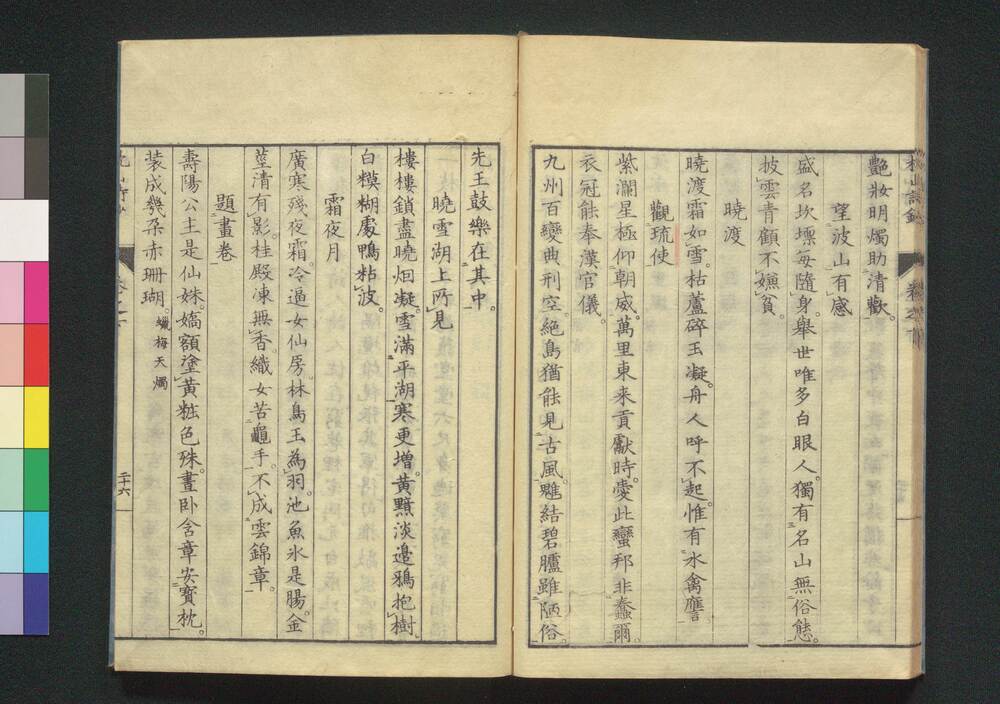 艶妝明燭助清歡。
望波山有感
盛名坎壈每隨身。舉世唯多白眼人。獨有名山無俗態。
披雲青顧不嫌貧。
曉渡
曉渡霜如雪。枯蘆碎玉凝。舟人呼不起。惟有水禽譍。
觀琉使
紫瀾星極仰朝威。萬里東來貢獻時。憂此蠻邦非蠢爾。
衣冠能奉漢官儀。
九州百變典刑空。絕島猶能見古風。魋結碧臚雖陋俗。
先王鼓樂在其中。
曉雪湖上所見
樓樓鎖盡曉烟凝。雪滿平湖寒更增。黃黯淡邉鴉抱樹。
白糢糊處鴨粘波。
霜夜月
廣寒殘夜霜。冷逼女仙房。林鳥玉為羽。池魚氷是腸。金
莖清有影。桂殿凍無香。織女苦龜手。不成雲錦章。
題畫卷
壽陽公主是仙姝。嬌額塗黃粧色殊。晝臥含章安寶枕。
装成幾朵赤珊瑚。蠟梅天燭
二十六